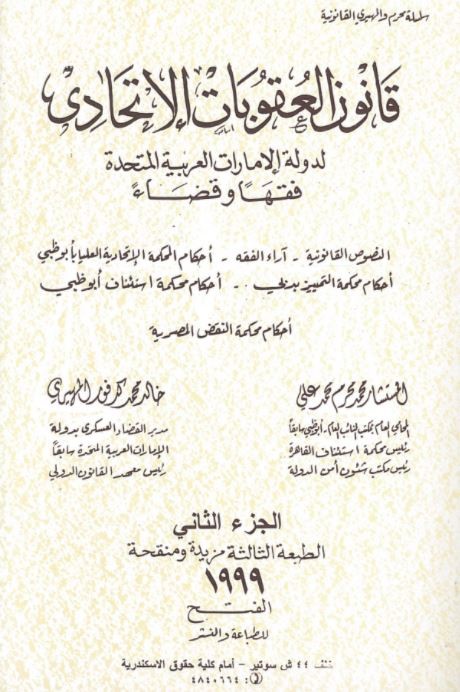 سلسلة محرم والمهيري القانونية
قانون العقوبات الإتحادى
لدولة الإمارات العربية المتحدة
فقهاً وقضاءً
النصوص القانونية - آراء الفقه - أحكام المحكمة الإتحادية العليا بأبوظبي
أحكام محكمة التمييز بدبي - أحكام محكمة استئناف أبوظبي
أحكام محكمة النقض المصرية
المستشار محمد محرم محمد علي
خالد محمد كدفور المهيري
المحامي العام بمكتب النائب العام - أبوظبي سابقاً
مدير القضاء العسكري بدولة
رئيس محكمة استئناف القاهرة
الإمارات العربية المتحدة سابقاً
رئيس مكتب شئون أمن الدولة
رئيس معهد القانون الدولي
الجزء الثاني
الطبعة الثالثة مزيدة ومنقحة
١٩٩٩
الفتح
للطباعة والنشر
خلف ٤٤ ش سوتير - أمام كلية حقوق الاسكندرية
: ٤٨٤٠٦٦٤